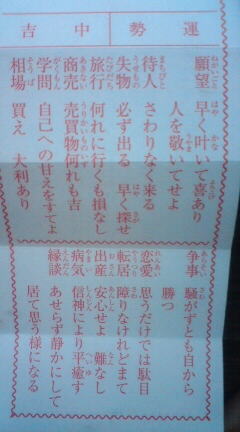 運勢　中吉
願望　早く叶いて喜あり
人を敬いてせよ
待人　さわりなく来る
失物　必ず出る　早く探せ
旅行　何れに行くも損なし
商売　売買物何れも吉
学問　自己への甘えをすてよ
相場　買え　大利あり
争事　騒がずとも自から
勝つ
恋愛　思うだけでは駄目
転居　障りなけれどまて
出産　安心せよ　難なし
病気　信神により平癒す
縁談　あせらず静かにして
居て思う様になる